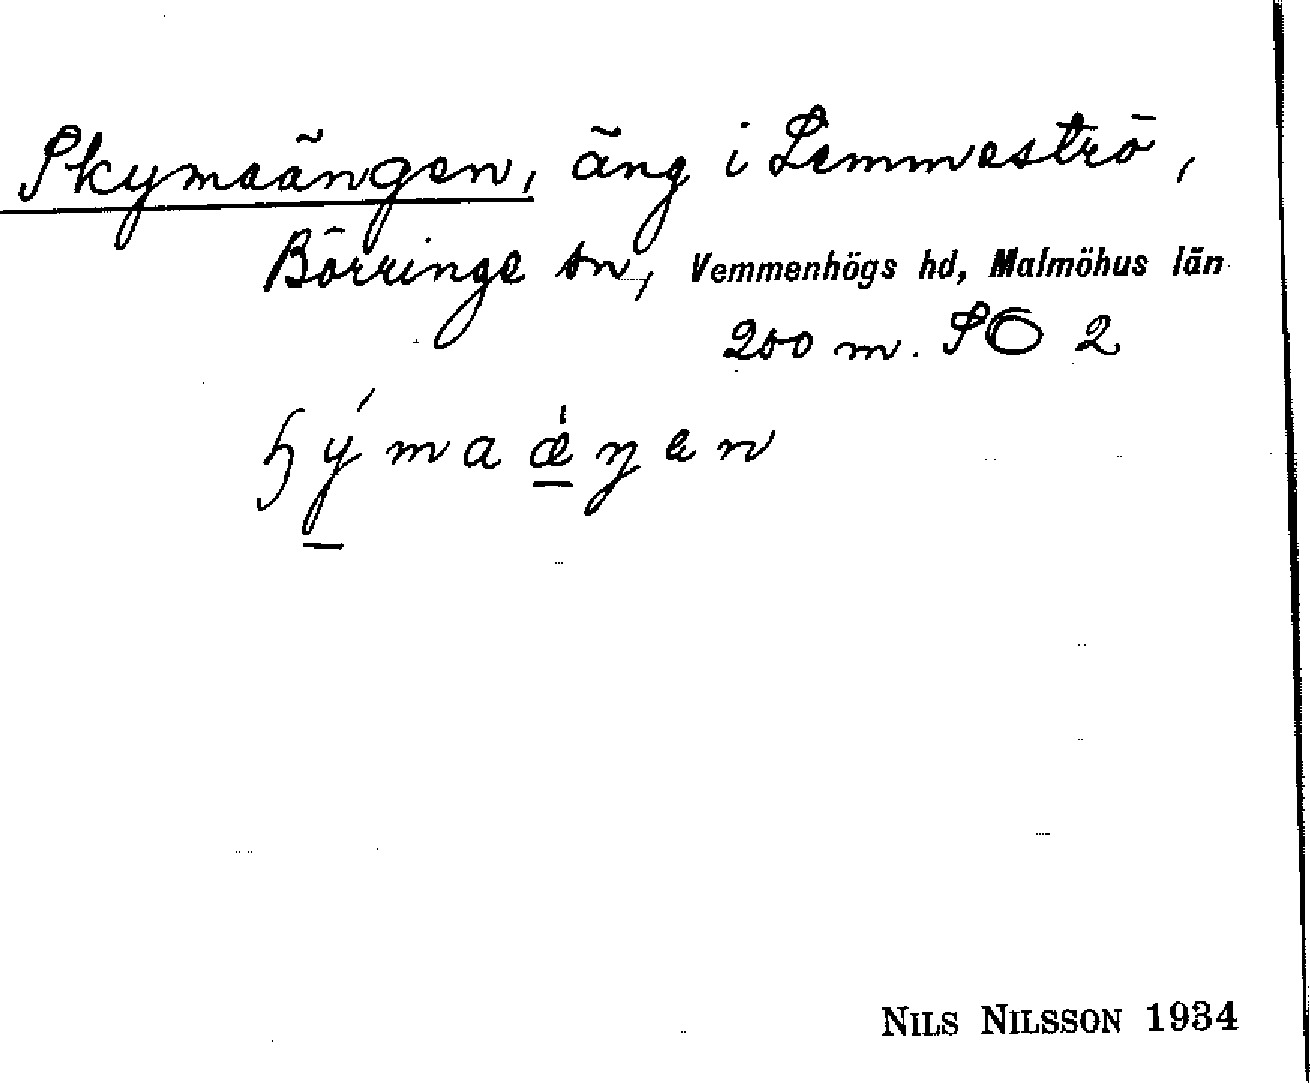 Skymaängen, äng i Lemmeströ,
Börringe sn, Vemmenhögs hd, Malmöhus län
200 m. SO 2
ɧýmaǽŋen
NILS NILSSON 1934